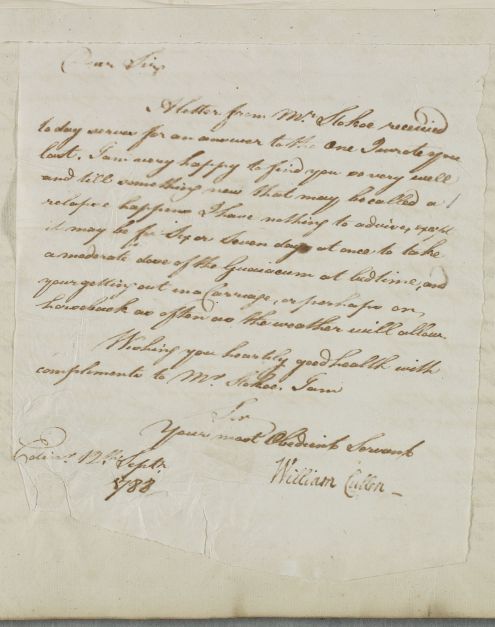 Dear Sir,
A letter from Mr. Stokoe received
to day serves for an answer to the one I wrote you
last. I am very happy to find you so very well
and till something new that may be called a
relapse happens I have nothing to advise, except
it may be for Six or Seven days at once to take
a moderate dose of the Guaiacum at bedtime, and
your getting out in a Carriage, or perhaps on
horseback as often as the weather will allow.
Wishing you heartily good health with
compliments to Mr. Stokoe. I am
Sir
Your most Obedient Servant
William Cullen
Edinr. 12th. Septr.
1788